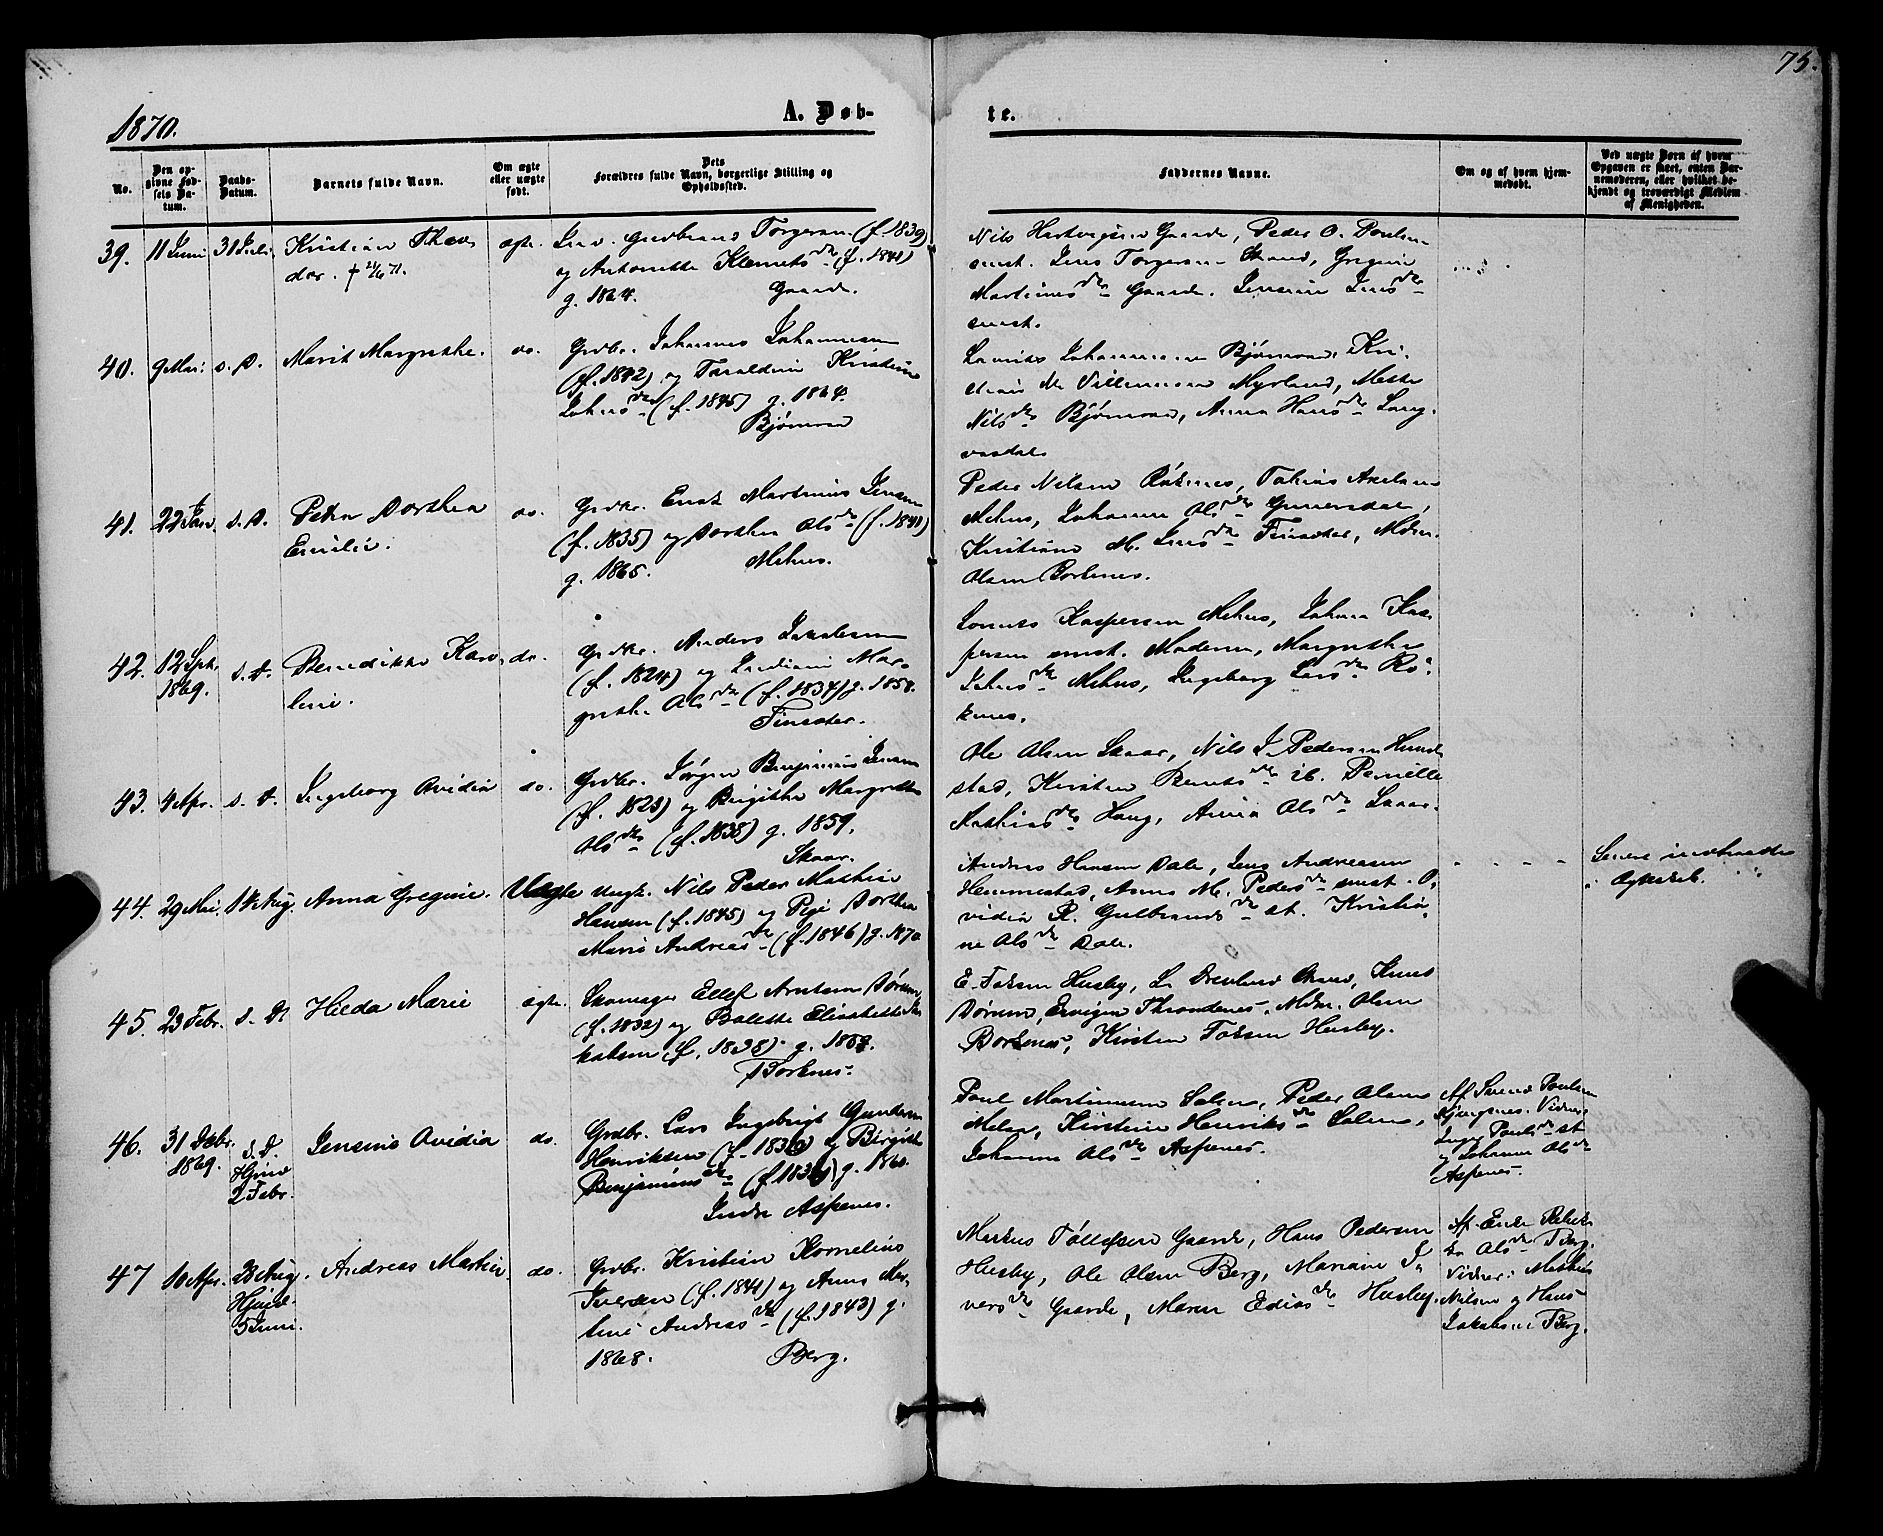 75.
1870.
A. Døb-
te.
No.
Den op-
givne Fød-
sels Da-
tum.
Daabs-
Datum.
Barnets fulde Navn.
Om ægte
eller uægte
født.
Dets
Forældres fulde Navn, borgerlige Stilling og
Opholdssted.
Faddernes Navne.
Om og af hvem hjem-
medøbt.
Ved uægte Børn af hvem
Opgaven er skeet, enten Bar-
nemoderen, eller hvilket be-
kjendt og troværdigt Medlem
af Menigheden.
39.
11 Juni
31 Juli
Kristian Theo-
dor. †
ægte.
Gudbrand Torgersen (f. 1839)
og Antonette Klemets dtr (f. 1841)
g. 1864. Gaarde.
Nils Hartvigsen Gaarde, Peder O. Poulsen
smst. Jens Torgersen Strand, Gregine
Martines dtr Gaarde. Jensine Jens dtr
smst.
40.
9 Mai
s. D.
Marit Margrethe.
do.
Grdbr. Johannes Johannesen
(f. 1842) og Taraldine Kristine
Johns dtr (f. 1845) g. 1864.
Bjørnraa
Johannesen Bjørnraa, Kri-
stian M. Villumsen Myrland, Mette
Nils dtr Bjørnraa, Anna Hans dtr Lang-
vasdal.
41.
22 Jan.
s. D.
Petra Dorthea
Emilie.
do.
Grdbr. Enok Martinus Jensen
(f. 1835) og Dorthea Ols dtr (f. 1841)
g. 1865. Mehus.
Peder Nilsen Røkenes, Tobias Axelsen
Mehus, Johanna Ols dtr Gunnesdal,
Kristiane M. Jens dtr Finsæter, Mdm.
Olsen Borkenes.
42.
12 Sptr.
1869.
s. D.
Benedikte Karo-
line.
do.
Grdbr. Anders Jakobsen
(f. 1824) og Mar-
grethe Ols dtr (f. 1834) g. 1858.
Finsæter.
Kaspersen Mehus, Johan Kas-
persen smst. Moderen, Margrethe
Johns dtr Mehus, Ingeborg Lars dtr Rø-
kenes.
43.
4 Apr.
s. D.
Ingeborg Ovidia
do.
Grdbr. Jørgen Benjamin Jensen
(f. 1823) og Birgitha Margrethe
Ols dtr (f. 1838) g. 1859.
Skaar.
Ole Olsen Skaar, Nils J. Pedersen Hunn-
stad, Kirsten Bernts dtr ib. Pernille
Mathias dtr Haug, Anna Ols dtr Skaar.
44.
29 Mai.
14 Aug.
Anna Gregine.
Uægte
Ungk. Nils Peder Mathias
Hansen (f. 1845) og Pige Dorthea
Marie Andreas dtr (f. 1846) g. 1870
Anders Hansen Dale, Jens Andreassen
Hemmestad, Anna M. Peders dtr smst. O-
vidia R. Gulbrands dtr st. Kristia-
ne Ols dtr Dale.
Senere indtraadte
Ægteskab.
45.
23 Febr.
s. D.
Hilda Marie
ægte.
Skomager Ellef Arntsen Dørum
(f. 1832) og Bolette Elisabeth Ja-
kobsen (f. 1838) g. 1863.
Borkenes.
E. Foksen Husby, Strand, Knud
Dørum, Trondenes, Mdm. Olsen
Borkenes, Kirsten Foksen Husby.
46.
31 Decbr.
1869.
s. D.
Hjmd
2 Febr.
Jensine Ovidia
do.
Grdbr. Lars Ingebrigt Gunder
Henriksen (f. 1836) og Birgithe
Benjamins dtr (f. 1836) g. 1860.
Indre Aspenes.
Poul Mortensen Salen, Peder Olsen
Melaa, Kirstine Henriks dtr Salen,
Johanna Ols dtr Aspenes.
Af Svend Poulsen
Vidner
Inger Pouls dtr st
og Johanna Ols dtr
Aspenes.
47
10 Apr.
28 Aug.
Hjmd.
5 Juni.
Andreas Martin.
do.
Grdbr. Kristian Kornelius
Iversen (f. 1841) og Anna Mar-
tine Andreas dtr (f. 1843) g.
1868. Berg.
Markus Tollefsen Gaarde, Hans Pedersen
Husby, Ole Olsen Berg, Mariane I-
vers dtr Gaarde, Maren Edias dtr Husby.
Af Enke Rebek-
ka Ols dtr Berg.
Vidner: Mathias
Nilsen og Hans
Jakobsen Berg.